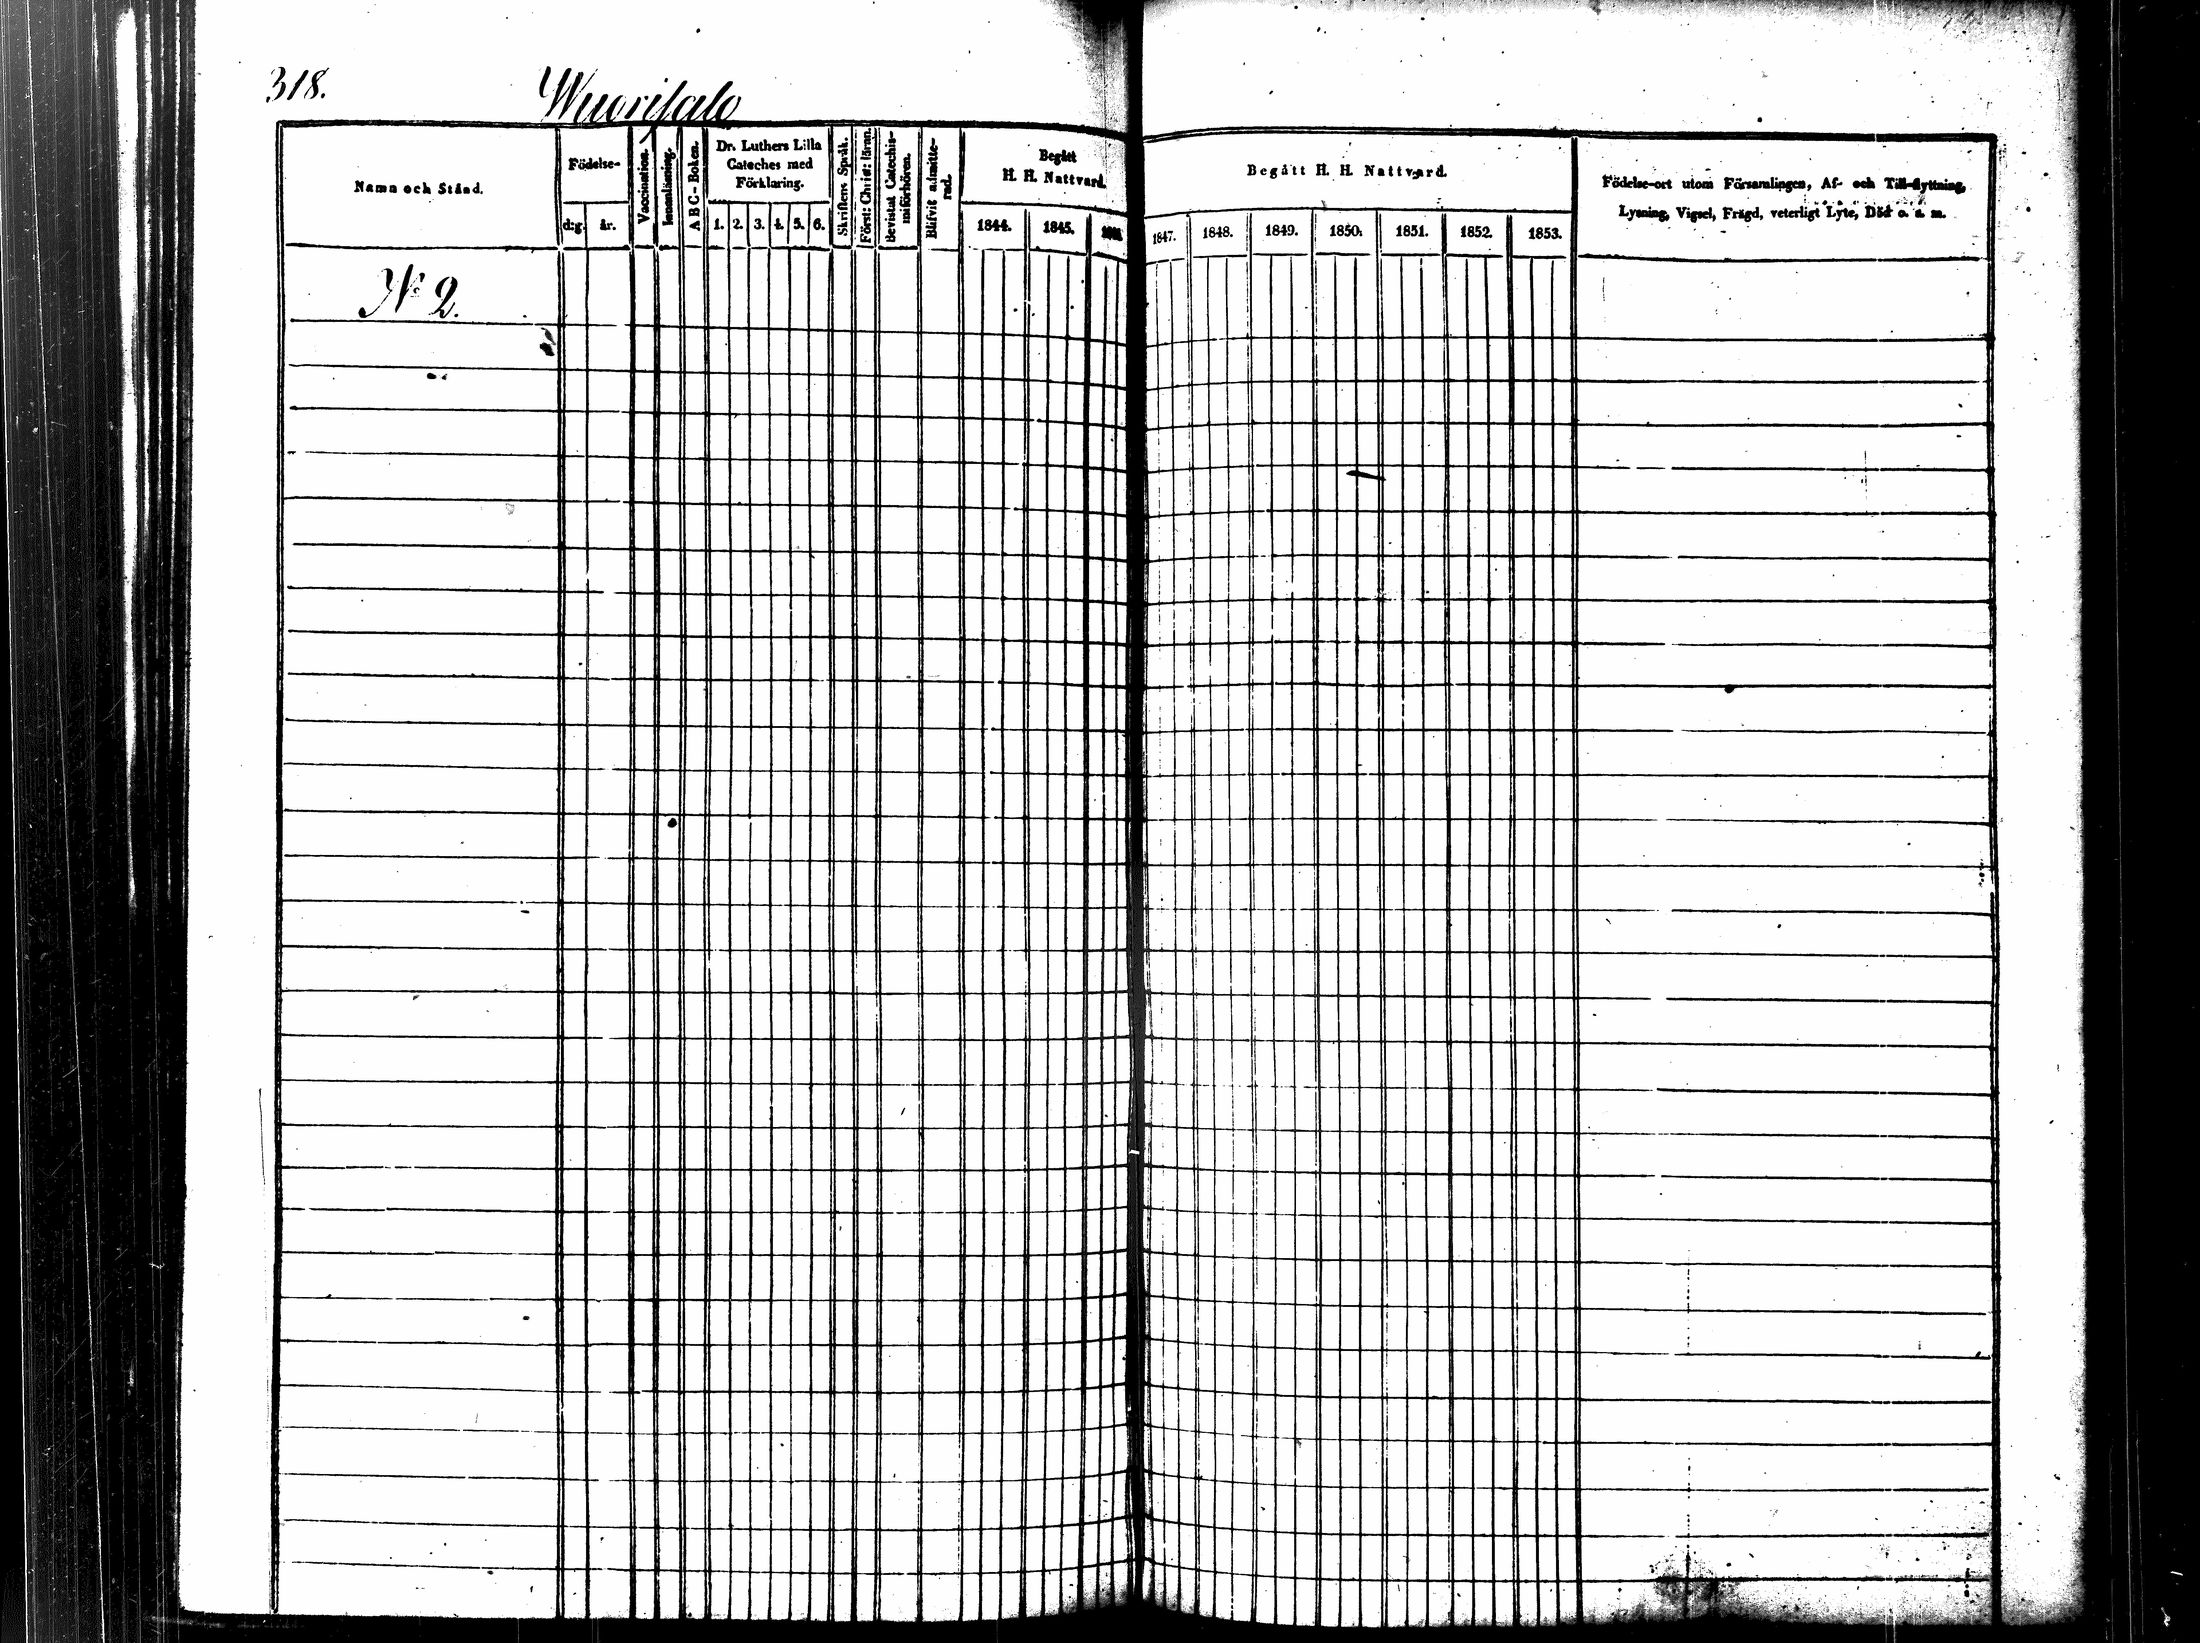 318.
Wuorisalo
Namn och Stånd.
Födelse-
d:g.
år.
Vaccination.
Innanläsning.
A B C - Boken.
Dr. Luthers Lilla
Cateches med
Förklaring.
1. 2. 3. 4. 5. 6.
Skriftens Språk.
Först: Christ: läran.
Bevistat Catechis-
miförhören.
Blifvit admitte-
rad.
Begått
H. H. Nattvard.
1844. 1845.
Begått H. H. Nattvard.
1847. 1848. 1849. 1850. 1851. 1852. 1853.
Födelse-ort utom Församlingen, Af- och Till-flyttning,
Lysning, Vigsel, Frägd, veterligt Lyte, Död o. s. m.
No 2.